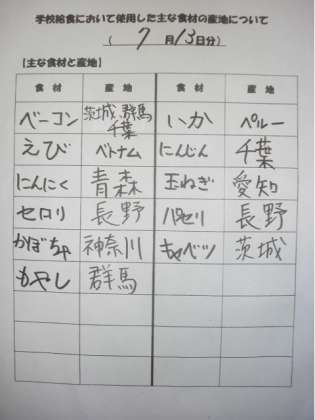 学校給食において使用した主な食材の産地について
( 7 月 13 日分)
【主な食材と産地】
食 材 産 地 食 材 産 地
ベーコン 茨城 群馬 千葉 いか ペルー
えび ベトナム にんじん 千葉
にんにく 青森 玉ねぎ 愛知
セロリ 長野 パセリ 長野
かぼちゃ 神奈川 キャベツ 茨城
もやし 群馬